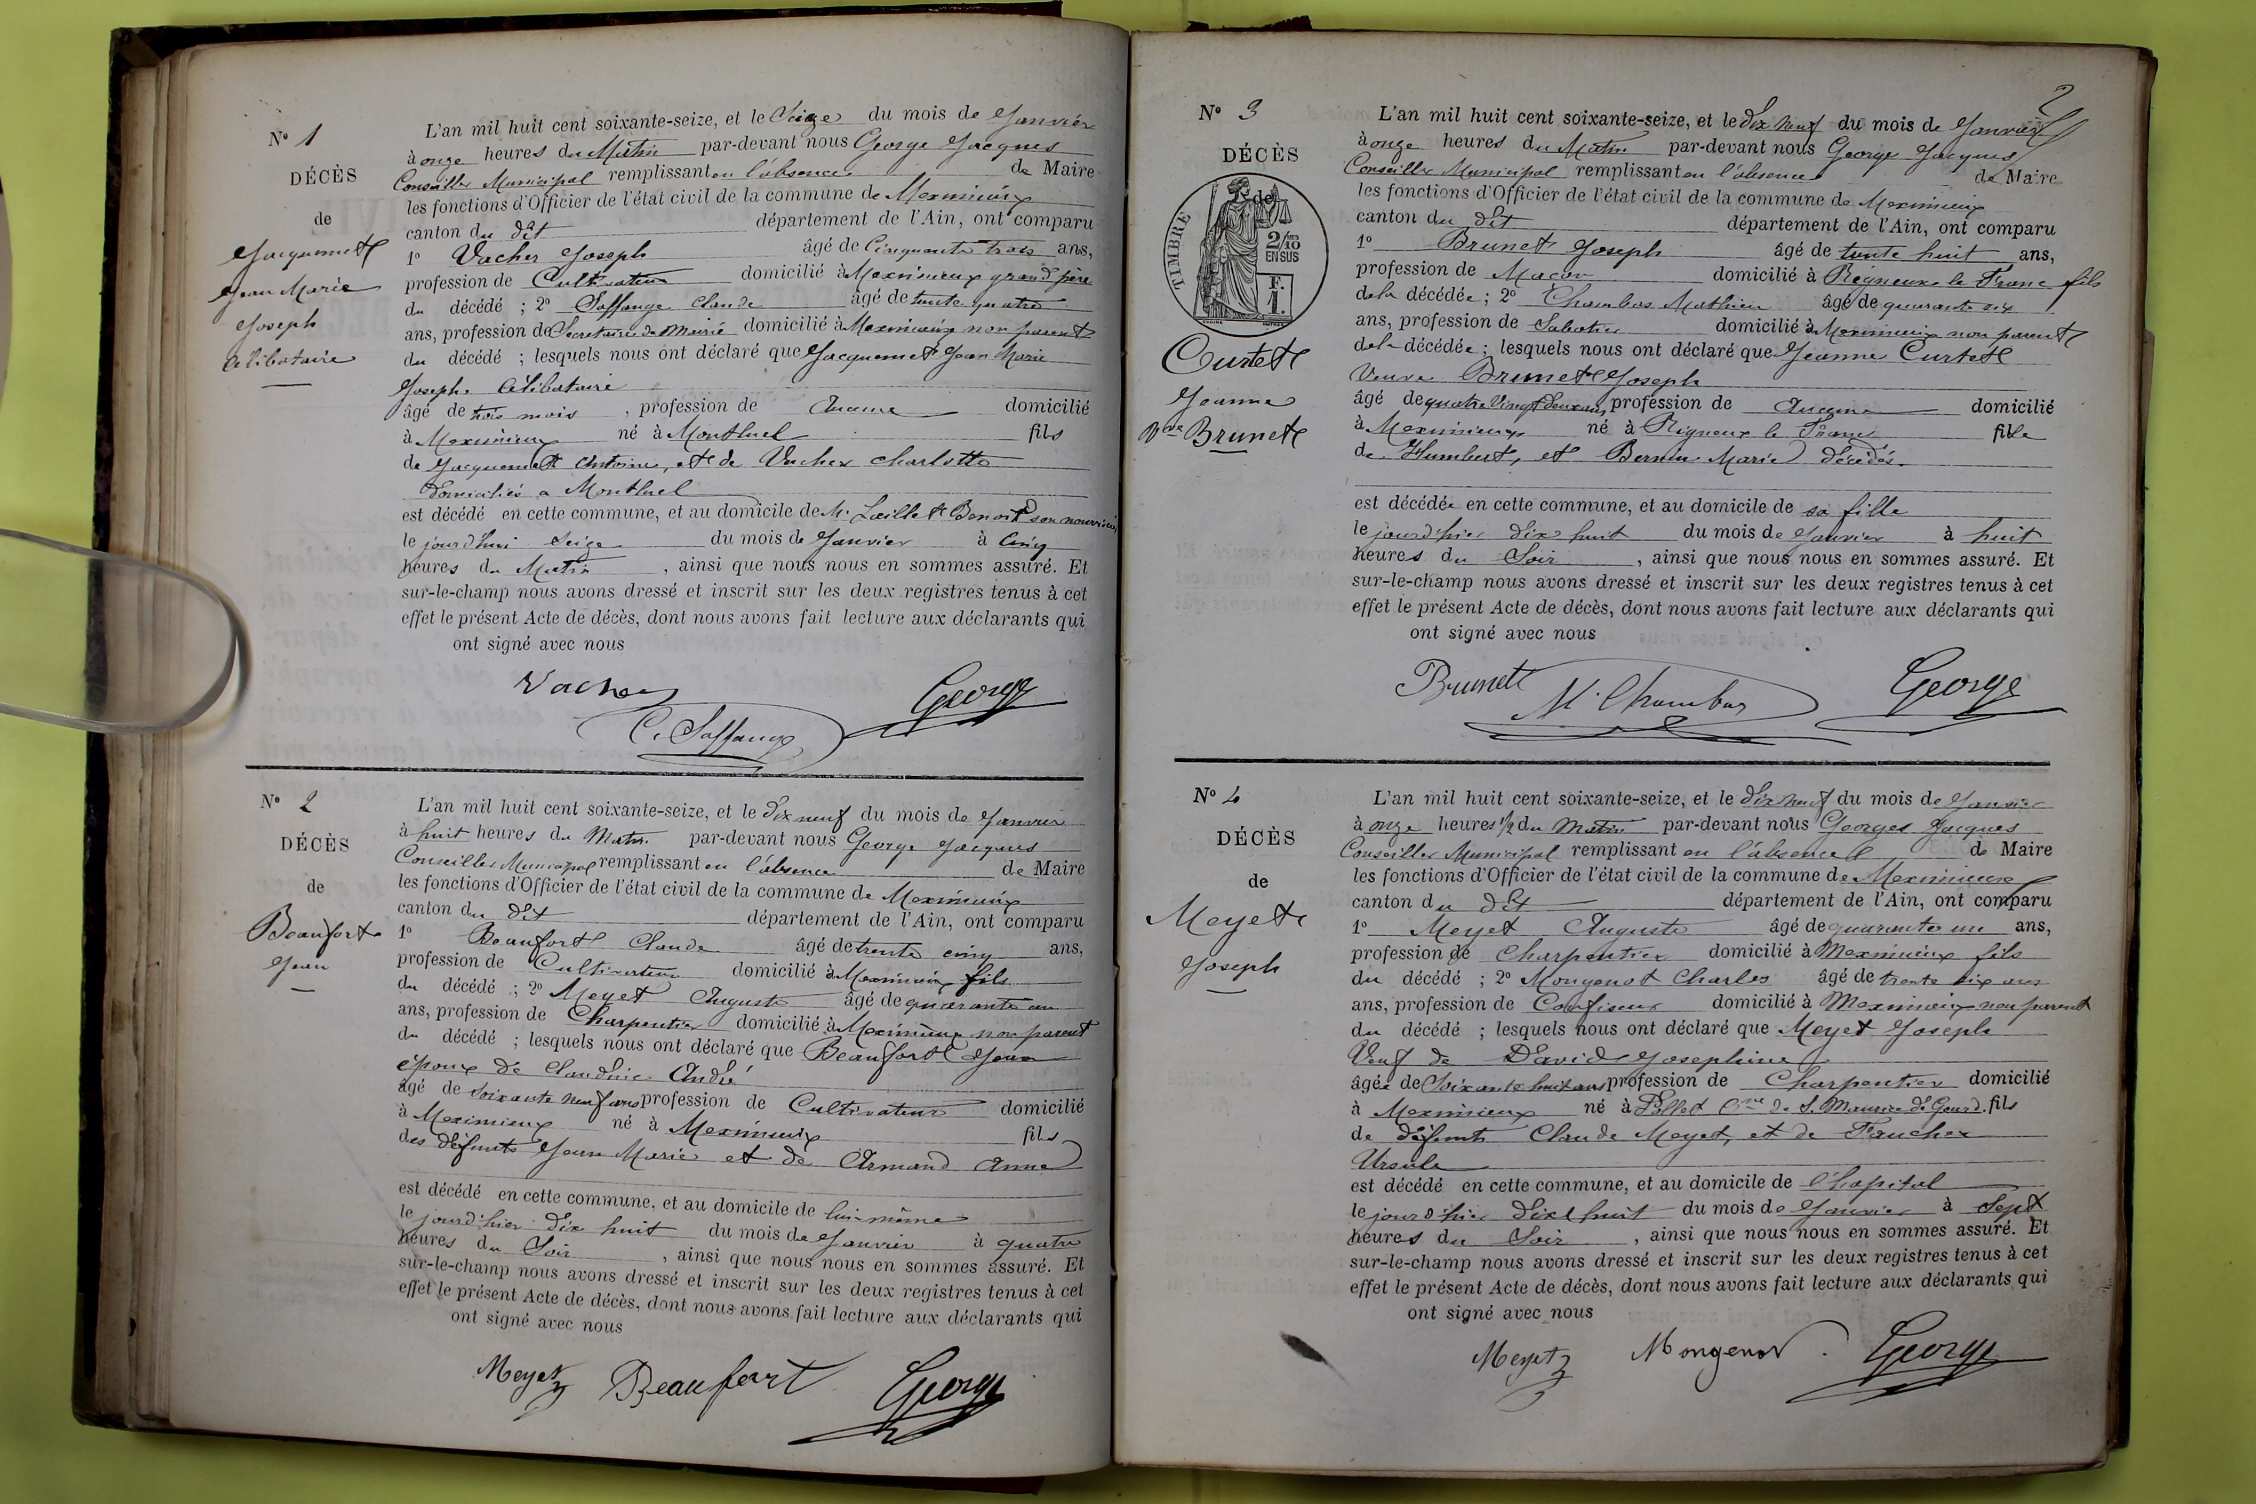 N° 1
DÉCÈS
de
Jacquemet
Jean Marie
Joseph
Célibataire
L'an mil huit cent soixante-seize, et le Seize du mois de Janvier
à onze heures du Matin par-devant nous George Jacques
Conseiller Municipal remplissant en l'absence de Maire
les fonctions d'Officier de l'état civil de la commune de Meximieux
canton du dit département de l'Ain, ont comparu
1° Vacher Joseph âgé de Cinquante trois ans,
profession de Cultivateur domicilié à Meximieux grand père
du décédé ; 2° Saffange Claude âgé de trente quatre
ans, profession de Secretaire de Mairie domicilié à Meximieux non parent
du décédé ; lesquels nous ont déclaré que Jacquemet Jean Marie
Joseph Célibataire
âgé de trois mois, profession de Aucune domicilié
à Meximieux né à Montluel fils
de Jacquemet Antoine, et de Vacher Charlotte
domiciliés a Montluel
est décédé en cette commune, et au domicile de M. Benoit son nourricier
le jourd'hui Seize du mois de Janvier à Cinq
heures du Matin, ainsi que nous nous en sommes assuré. Et
sur-le-champ nous avons dressé et inscrit sur les deux registres tenus à cet
effet le présent Acte de décès, dont nous avons fait lecture aux déclarants qui
ont signé avec nous
Vacher
C. Saffange
George
N° 2
DÉCÈS
de
Beaufort
Jean
L'an mil huit cent soixante-seize, et le dix neuf du mois de Janvier
à huit heures du Matin par-devant nous George Jacques
Conseiller Municipal remplissant en l'absence de Maire
les fonctions d'Officier de l'état civil de la commune de Meximieux
canton du dit département de l'Ain, ont comparu
1° Beaufort Claude âgé de trente cinq ans,
profession de Cultivateur domicilié à Meximieux fils
du décédé ; 2° Meyet Auguste âgé de quarante un
ans, profession de Charpentier domicilié à Meximieux non parent
du décédé ; lesquels nous ont déclaré que Beaufort Jean
époux de Claudine André
âgé de soixante neuf ans profession de Cultivateur domicilié
à Meximieux né à Meximieux fils
des défunts Jean Marie et de Armand Anne
est décédé en cette commune, et au domicile de lui-même
le jourd'hier dix huit du mois de Janvier à quatre
heures du Soir, ainsi que nous nous en sommes assuré. Et
sur-le-champ nous avons dressé et inscrit sur les deux registres tenus à cet
effet le présent Acte de décès, dont nous avons fait lecture aux déclarants qui
ont signé avec nous
Meyet Beaufort George
2
N° 3
DÉCÈS
de
TIMBRE
2/10
EN SUS
F.
1.
Curtet
Jeanne
Vve Brunet
L'an mil huit cent soixante-seize, et le dix neuf du mois de Janvier
à onze heures du Matin par-devant nous George Jacques
Conseiller Municipal remplissant en l'absence de Maire
les fonctions d'Officier de l'état civil de la commune de Meximieux
canton du dit département de l'Ain, ont comparu
1° Brunet Joseph âgé de trente huit ans,
profession de Maçon domicilié à Rigneux le Franc fils
de la décédée ; 2° Chambas Mathieu âgé de quarante six
ans, profession de Sabotier domicilié à Meximieux non parent
de la décédée ; lesquels nous ont déclaré que Jeanne Curtet
Veuve Brunet Joseph
âgé de quatre vingt deux ans, profession de Aucune domicilié
à Meximieux né à Rigneux le Franc fille
de Humbert, et Bernin Marie décédés
est décédée en cette commune, et au domicile de sa fille
le jourd'hier dix huit du mois de Janvier à huit
heures du Soir, ainsi que nous nous en sommes assuré. Et
sur-le-champ nous avons dressé et inscrit sur les deux registres tenus à cet
effet le présent Acte de décès, dont nous avons fait lecture aux déclarants qui
ont signé avec nous
Brunet M. Chambas George
N° 4
DÉCÈS
de
Meyet
Joseph
L'an mil huit cent soixante-seize, et le dix neuf du mois de Janvier
à onze heures 1/2 du Matin par-devant nous Georges Jacques
Conseiller Municipal remplissant en l'absence de Maire
les fonctions d'Officier de l'état civil de la commune de Meximieux
canton du dit département de l'Ain, ont comparu
1° Meyet Auguste âgé de quarante un ans,
profession de Charpentier domicilié à Meximieux fils
du décédé ; 2° Mongenot Charles âgé de trente six ans
ans, profession de Confiseur domicilié à Meximieux non parent
du décédé ; lesquels nous ont déclaré que Meyet Joseph
Veuf de David Josephine
âgée de Soixante huit ans profession de Charpentier domicilié
à Meximieux né à Pollet Cne de S. Maurice de Gourd. fils
de défunts Claude Meyet, et de Faucher
Ursule
est décédé en cette commune, et au domicile de l'hopital
le jourd'hier dix huit du mois de Janvier à Sept
heures du Soir, ainsi que nous nous en sommes assuré. Et
sur-le-champ nous avons dressé et inscrit sur les deux registres tenus à cet
effet le présent Acte de décès, dont nous avons fait lecture aux déclarants qui
ont signé avec nous
Meyet Mongenot. George